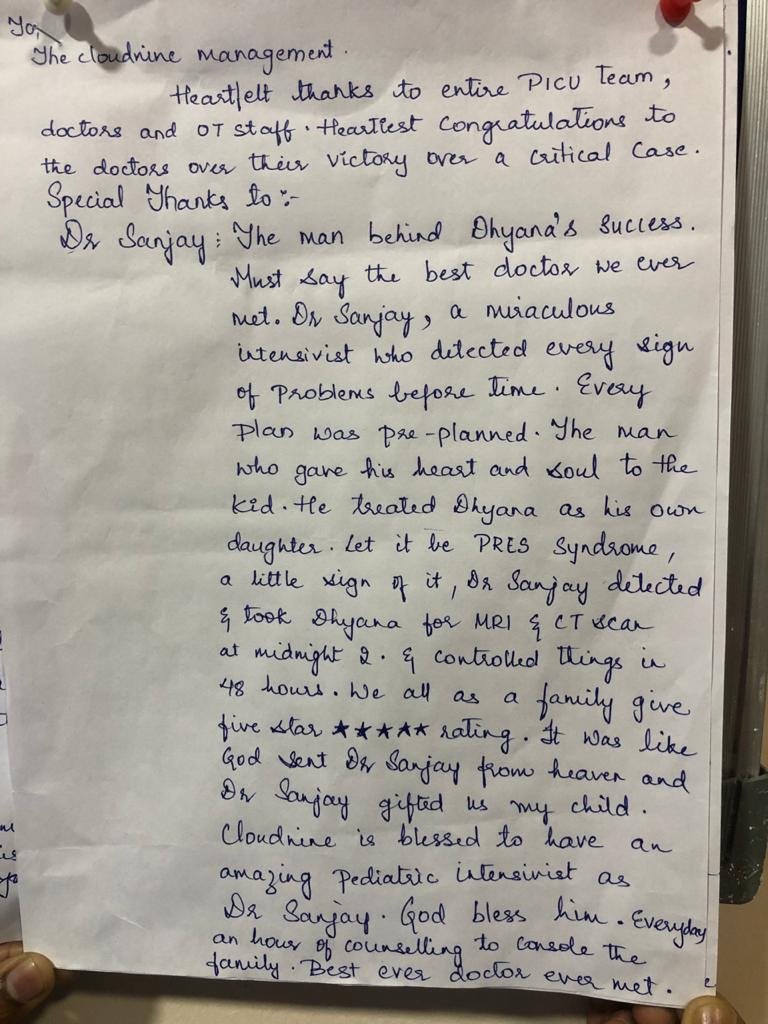 To,
The cloudnine management.
Heartfelt thanks to entire PICU Team,
doctors and OT staff. Heartiest Congratulations to
the doctors over their victory over a critical Case.
Special Thanks to :-
Dr Sanjay : The man behind Dhyana's Success.
Must say the best doctor we ever
met. Dr Sanjay, a miraculous
intensivist who detected every sign
of Problems before time. Every
Plan was pre-planned. The man
who gave his heart and soul to the
kid. He treated Dhyana as his own
daughter. Let it be PRES Syndrome,
a little sign of it, Dr Sanjay detected
& took Dhyana for MRI & CT scan
at midnight 2. & controlled things in
48 hours. We all as a family give
five star ★★★★★ rating. It was like
God sent Dr Sanjay from heaven and
Dr Sanjay gifted us my child.
Cloudnine is blessed to have an
amazing Pediatric intensivist as
Dr Sanjay. God bless him. Everyday
an hour of counselling to console the
family. Best ever doctor ever met.